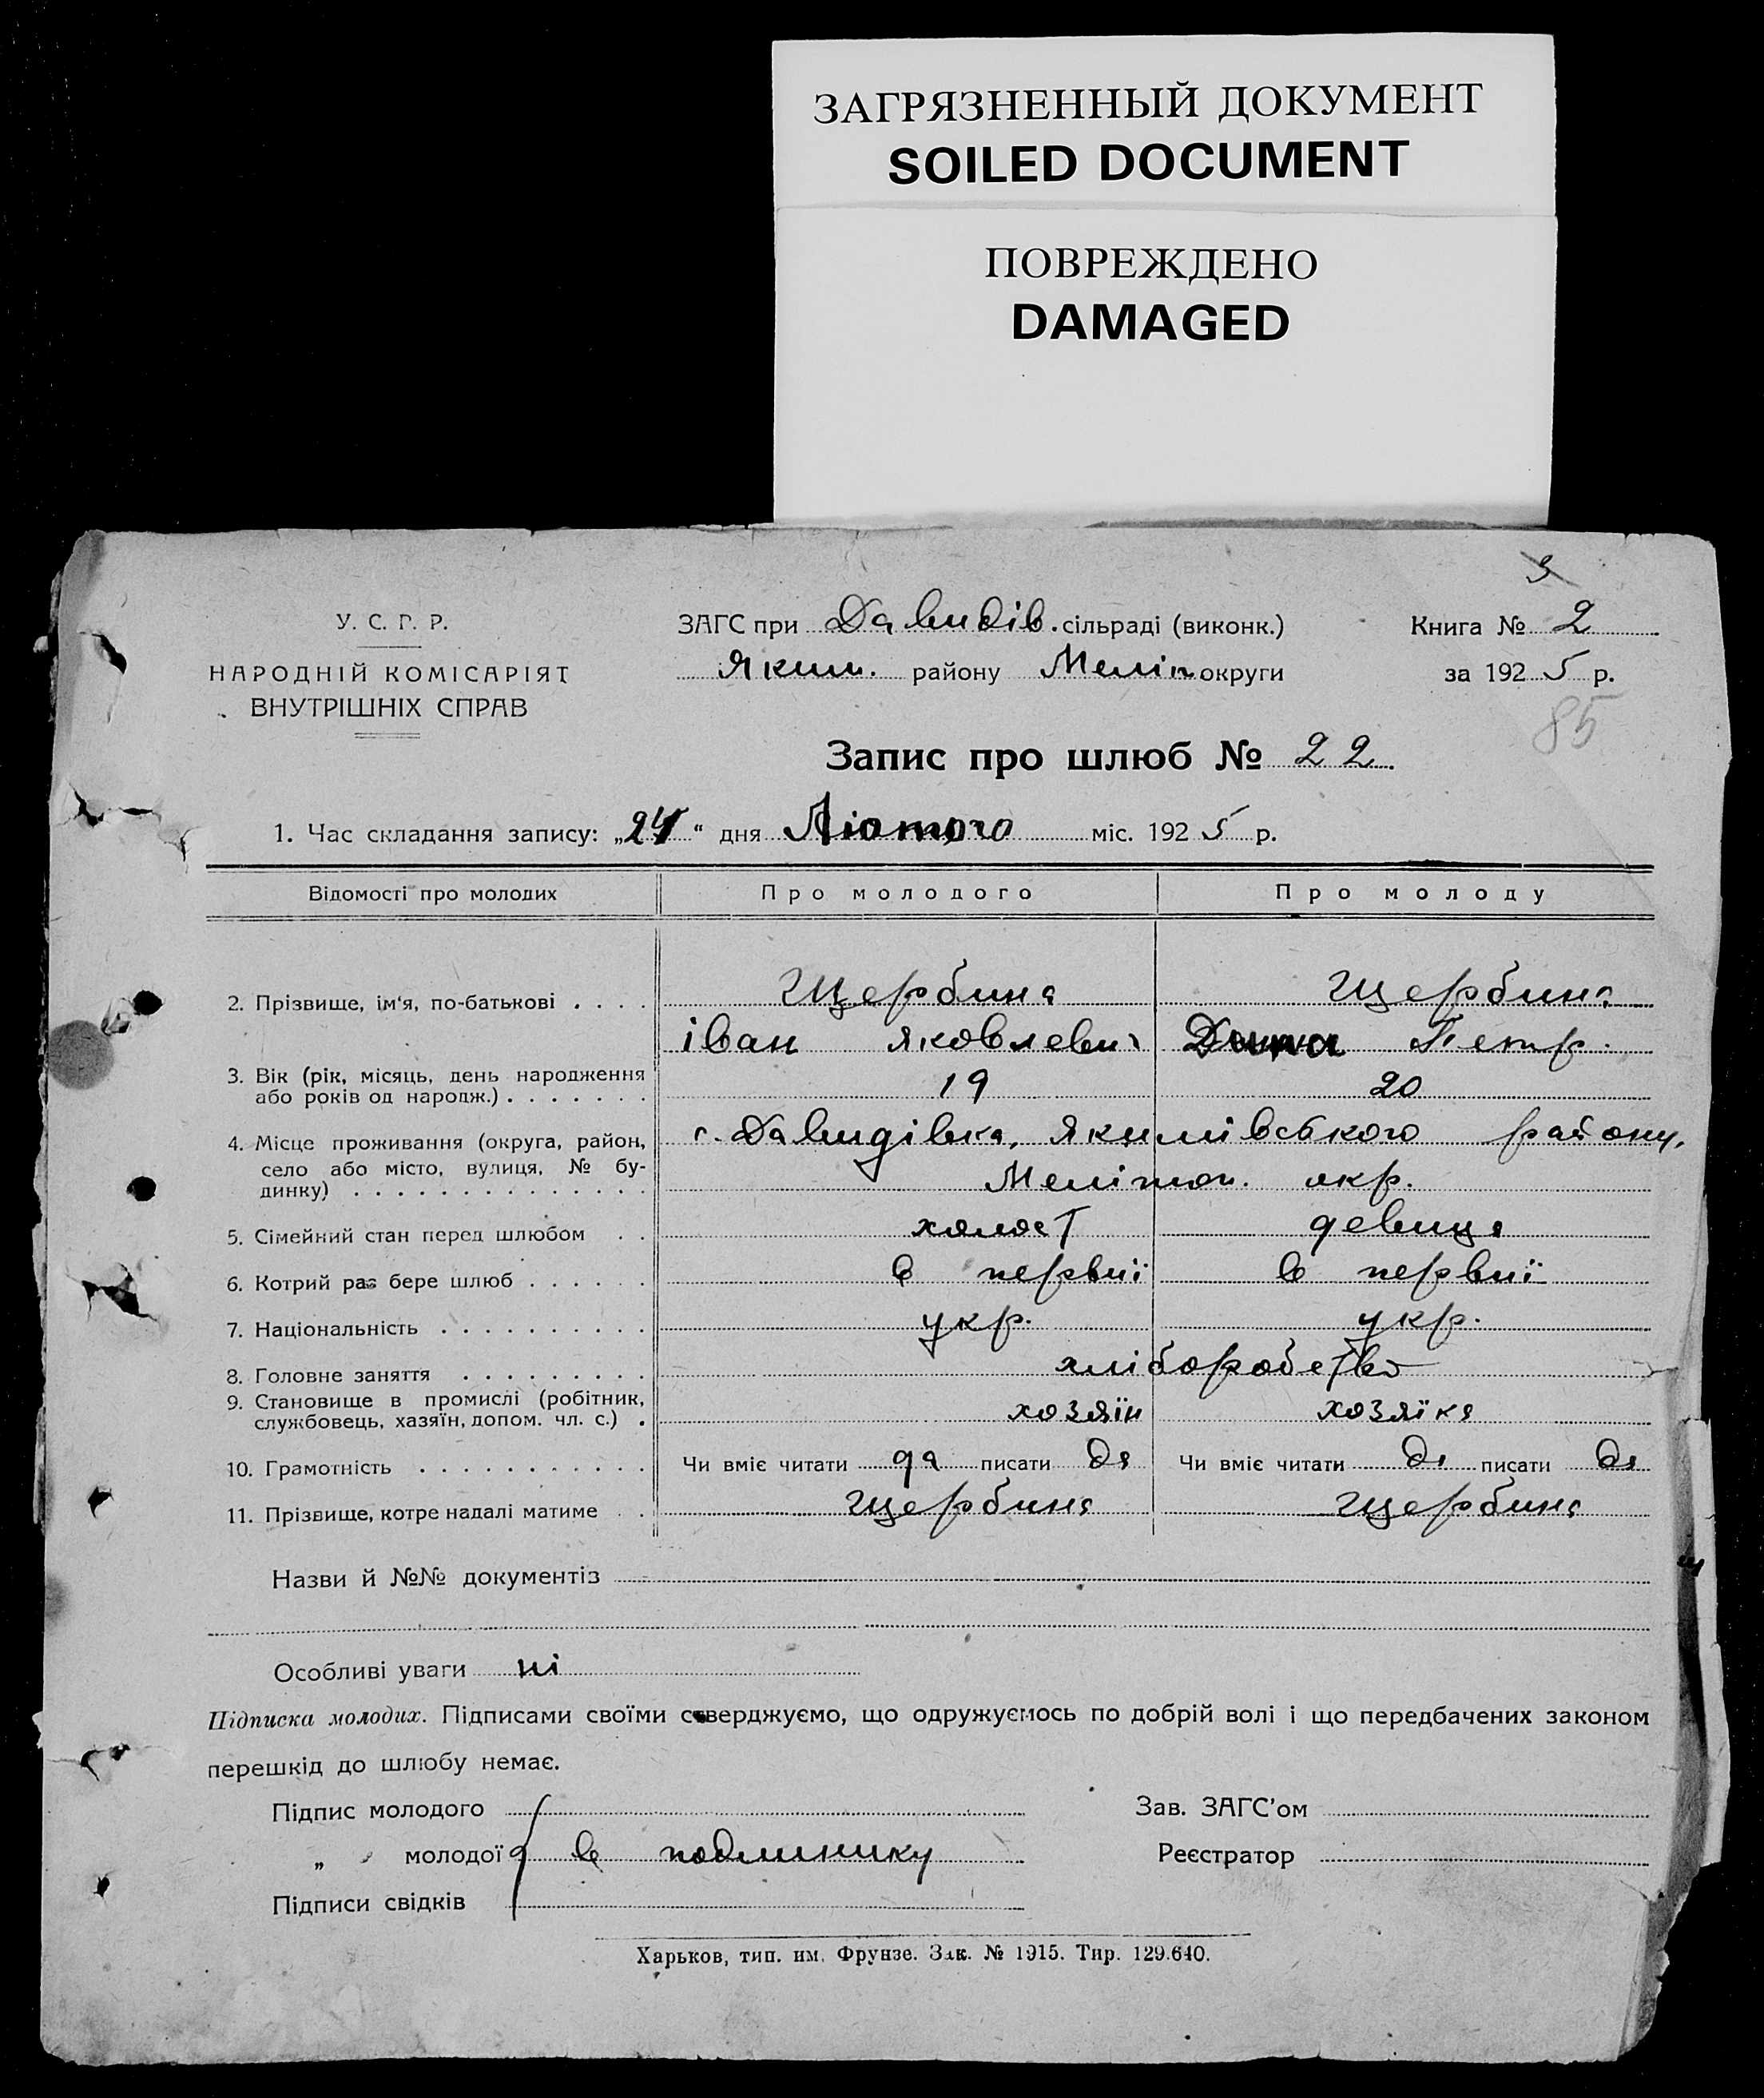 ЗАГРЯЗНЕННЫЙ ДОКУМЕНТ
SOILED DOCUMENT
ПОВРЕЖДЕНО
DAMAGED
У. С. Г. Р.
НАРОДНІЙ КОМІСАРІЯТ
ВНУТРІШНІХ СПРАВ
ЗАГС при Давидів. сільраді (виконк.)
Яким. району Меліт. округи
Книга № 2
за 1925 р.
85
Запис про шлюб № 22
1. Час складання запису: „24“ дня Лютого міс. 1925 р.
Відомості про молодих Про молодого Про молоду
2. Прізвище, ім'я, по-батькові . . . . Щербина Щербина
іван Яковлевич Петр.
3. Вік (рік, місяць, день народження
або років од народж.) . . . . . . . 19 20
4. Місце проживання (округа, район, с. Давидівка, Якимівського району,
село або місто, вулиця, № бу-
динку) . . . . . . . . . . . . . . Мелітоп. окр.
5. Сімейний стан перед шлюбом . . холост девица
6. Котрий раз бере шлюб . . . . . . в первиї в первиї
7. Національність . . . . . . . . . . укр. укр.
8. Головне заняття . . . . . . . . . хліборобство
9. Становище в промислі (робітник,
службовець, хазяїн, допом. чл. с.) . хозяїн хозяїка
10. Грамотність . . . . . . . . . . . Чи вміє читати да писати да Чи вміє читати да писати да
11. Прізвище, котре надалі матиме . . Щербина Щербина
Назви й №№ документів
Особливі уваги ні
Підписка молодих. Підписами своїми стверджуємо, що одружуємось по добрій волі і що передбачених законом
перешкід до шлюбу немає.
Підпис молодого Зав. ЗАГС'ом
„ молодої в подлинику Реєстратор
Підписи свідків
Харьков, тип. им. Фрунзе. Зак. № 1915. Тир. 129.640.